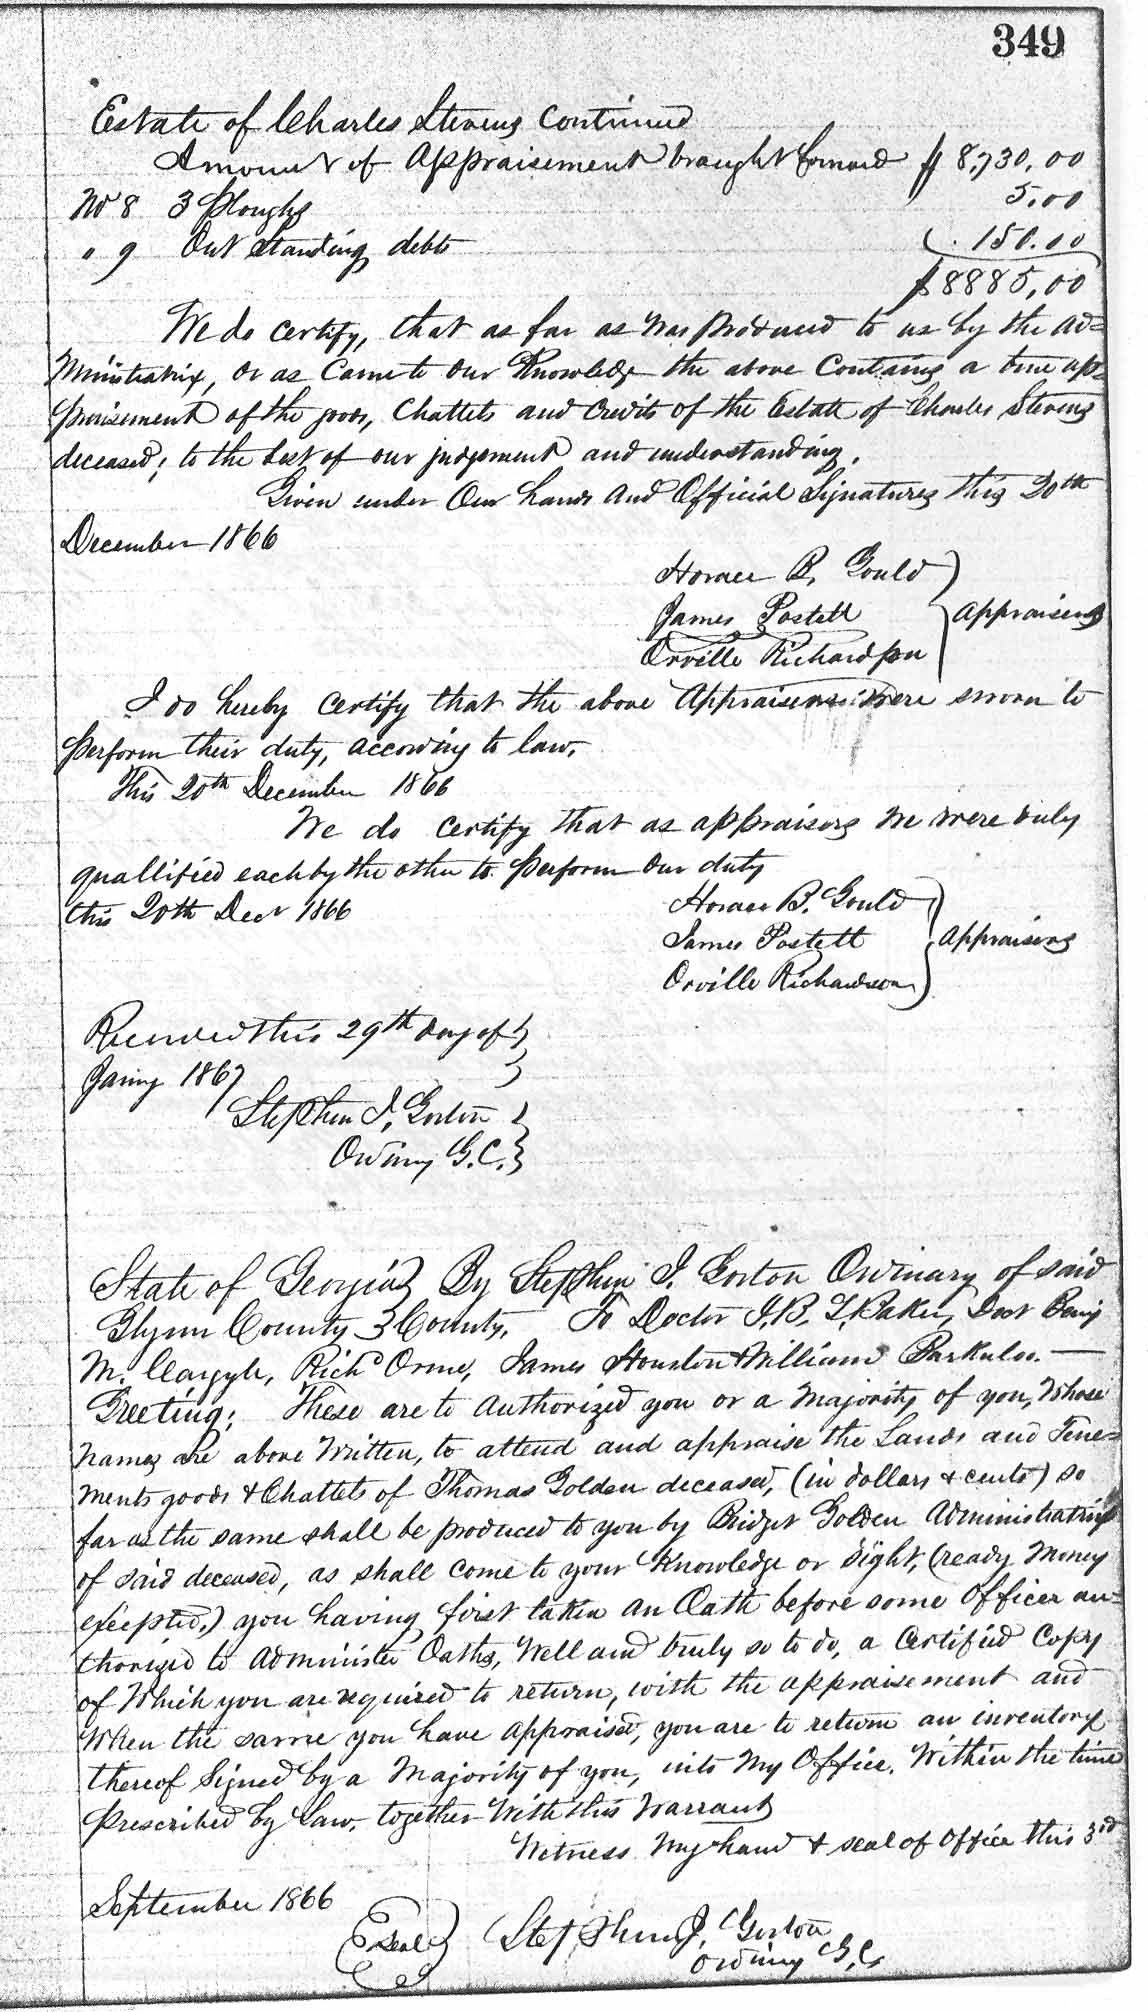 349
Estate of Charles Stevens Continued
Amount of Appraisement brought forward $ 8,730.00
No 8 3 Ploughs 5.00
" 9 Out Standing debts 150.00
$8885,00
We do certify, that as far as was produced to us by the Ad=
ministratrix, or as Came to Our Knowledge the above Contains a true ap=
praisement of the goods, Chattels and Credits of the Estate of Charles Stevens
deceased; to the best of our judgement and understanding.
Given under Our hands And Official Signatures this 20th
December 1866
Horace B. Gould
James Postell } Appraisers
Orville Richardson
I do hereby certify that the above Appraisers were sworn to
perform their duty, according to law.
This 20th December 1866
We do certify that as appraisers We were duly
quallified each by the other to perform Our duty
this 20th Decr 1866
Horace B. Gould
James Postell } Appraisers
Orville Richardson
Recorded this 29th day of
Jany 1867
Stephen J. Gorton
Ordiny G.C.
State of Georgia } By Stephen J. Gorton Ordinary of said
Glynn County } County. To Doctor J.B. Doct Benj
M. Rich'd Orme, James Houston & William
Greeting: These are to Authorized you or a Majority of you, Whose
names are above Written, to attend and appraise the Lands and Tene=
ments goods & Chattels of Thomas Golden deceased, (in dollars & cents) so
far as the same shall be produced to you by Bridget Golden Administratrix
of said deceased, as shall come to your Knowledge or sight, (ready Money
excepted.) you having first taken an Oath before some Officer au=
thorized to Administer Oaths, Well and truly so to do, a Certified Copy
of Which you are required to return, with the appraisement and
When the same you have appraised, you are to return an inventory
thereof Signed by a Majority of you, into My Office, Within the time
prescribed by Law, together With this Warrant
Witness My hand & seal of Office this 3rd
September 1866
Seal Stephen J. Gorton
Ordiny G.C.